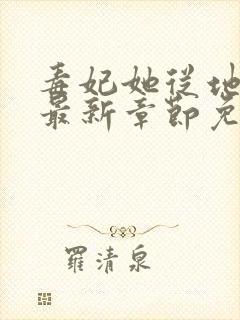 毒妃她从地
最新章節免
羅清泉